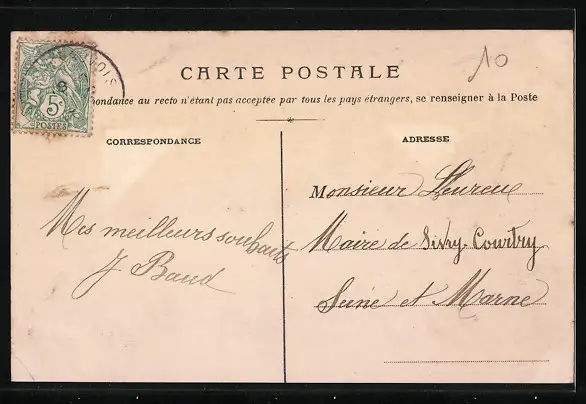 10
CARTE POSTALE
5c
POSTES
pondance au recto n'étant pas acceptée par tous les pays étrangers, se renseigner à la Poste
CORRESPONDANCE
ADRESSE
Monsieur Lheureux
Maire de Sivry-Courtry
Seine et Marne
Mes meilleurs souhaits
J. Baud